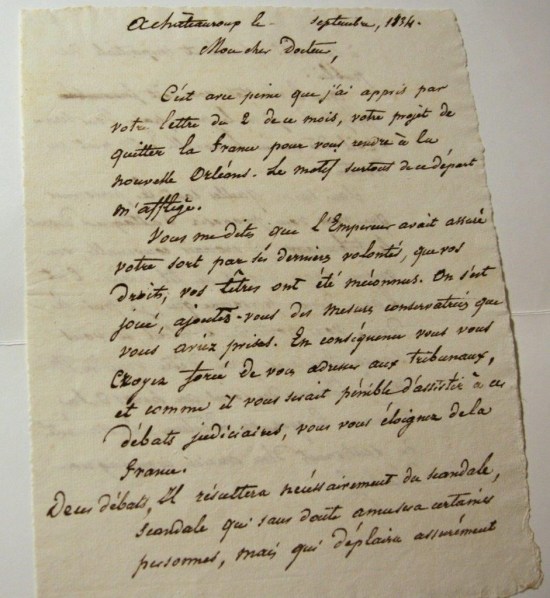 a chateauroux le septembre, 1834.
Mon cher Docteur,
C'est avec peine que j'ai appris par
votre lettre du 2 de ce mois, votre projet de
quitter la France pour vous rendre à la
nouvelle Orléans. Le motif surtout de ce départ
m'afflige.
Vous me dites que l'Empereur avait assuré
votre sort par ses dernieres volontés, que vos
droits, vos titres ont été méconnus. On s'est
joué, ajoutez-vous des mesures conservatrices que
vous aviez prises. En conséquence vous vous
croyez forcé de vous adresser aux tribunaux,
et comme il vous serait pénible d'assister à ces
débats judiciaires, vous vous éloignez de la
France.
De ces débats, Il résultera nécessairement du scandale,
scandale qui sans doute amusera certaines
personnes, mais qui déplaira assurément